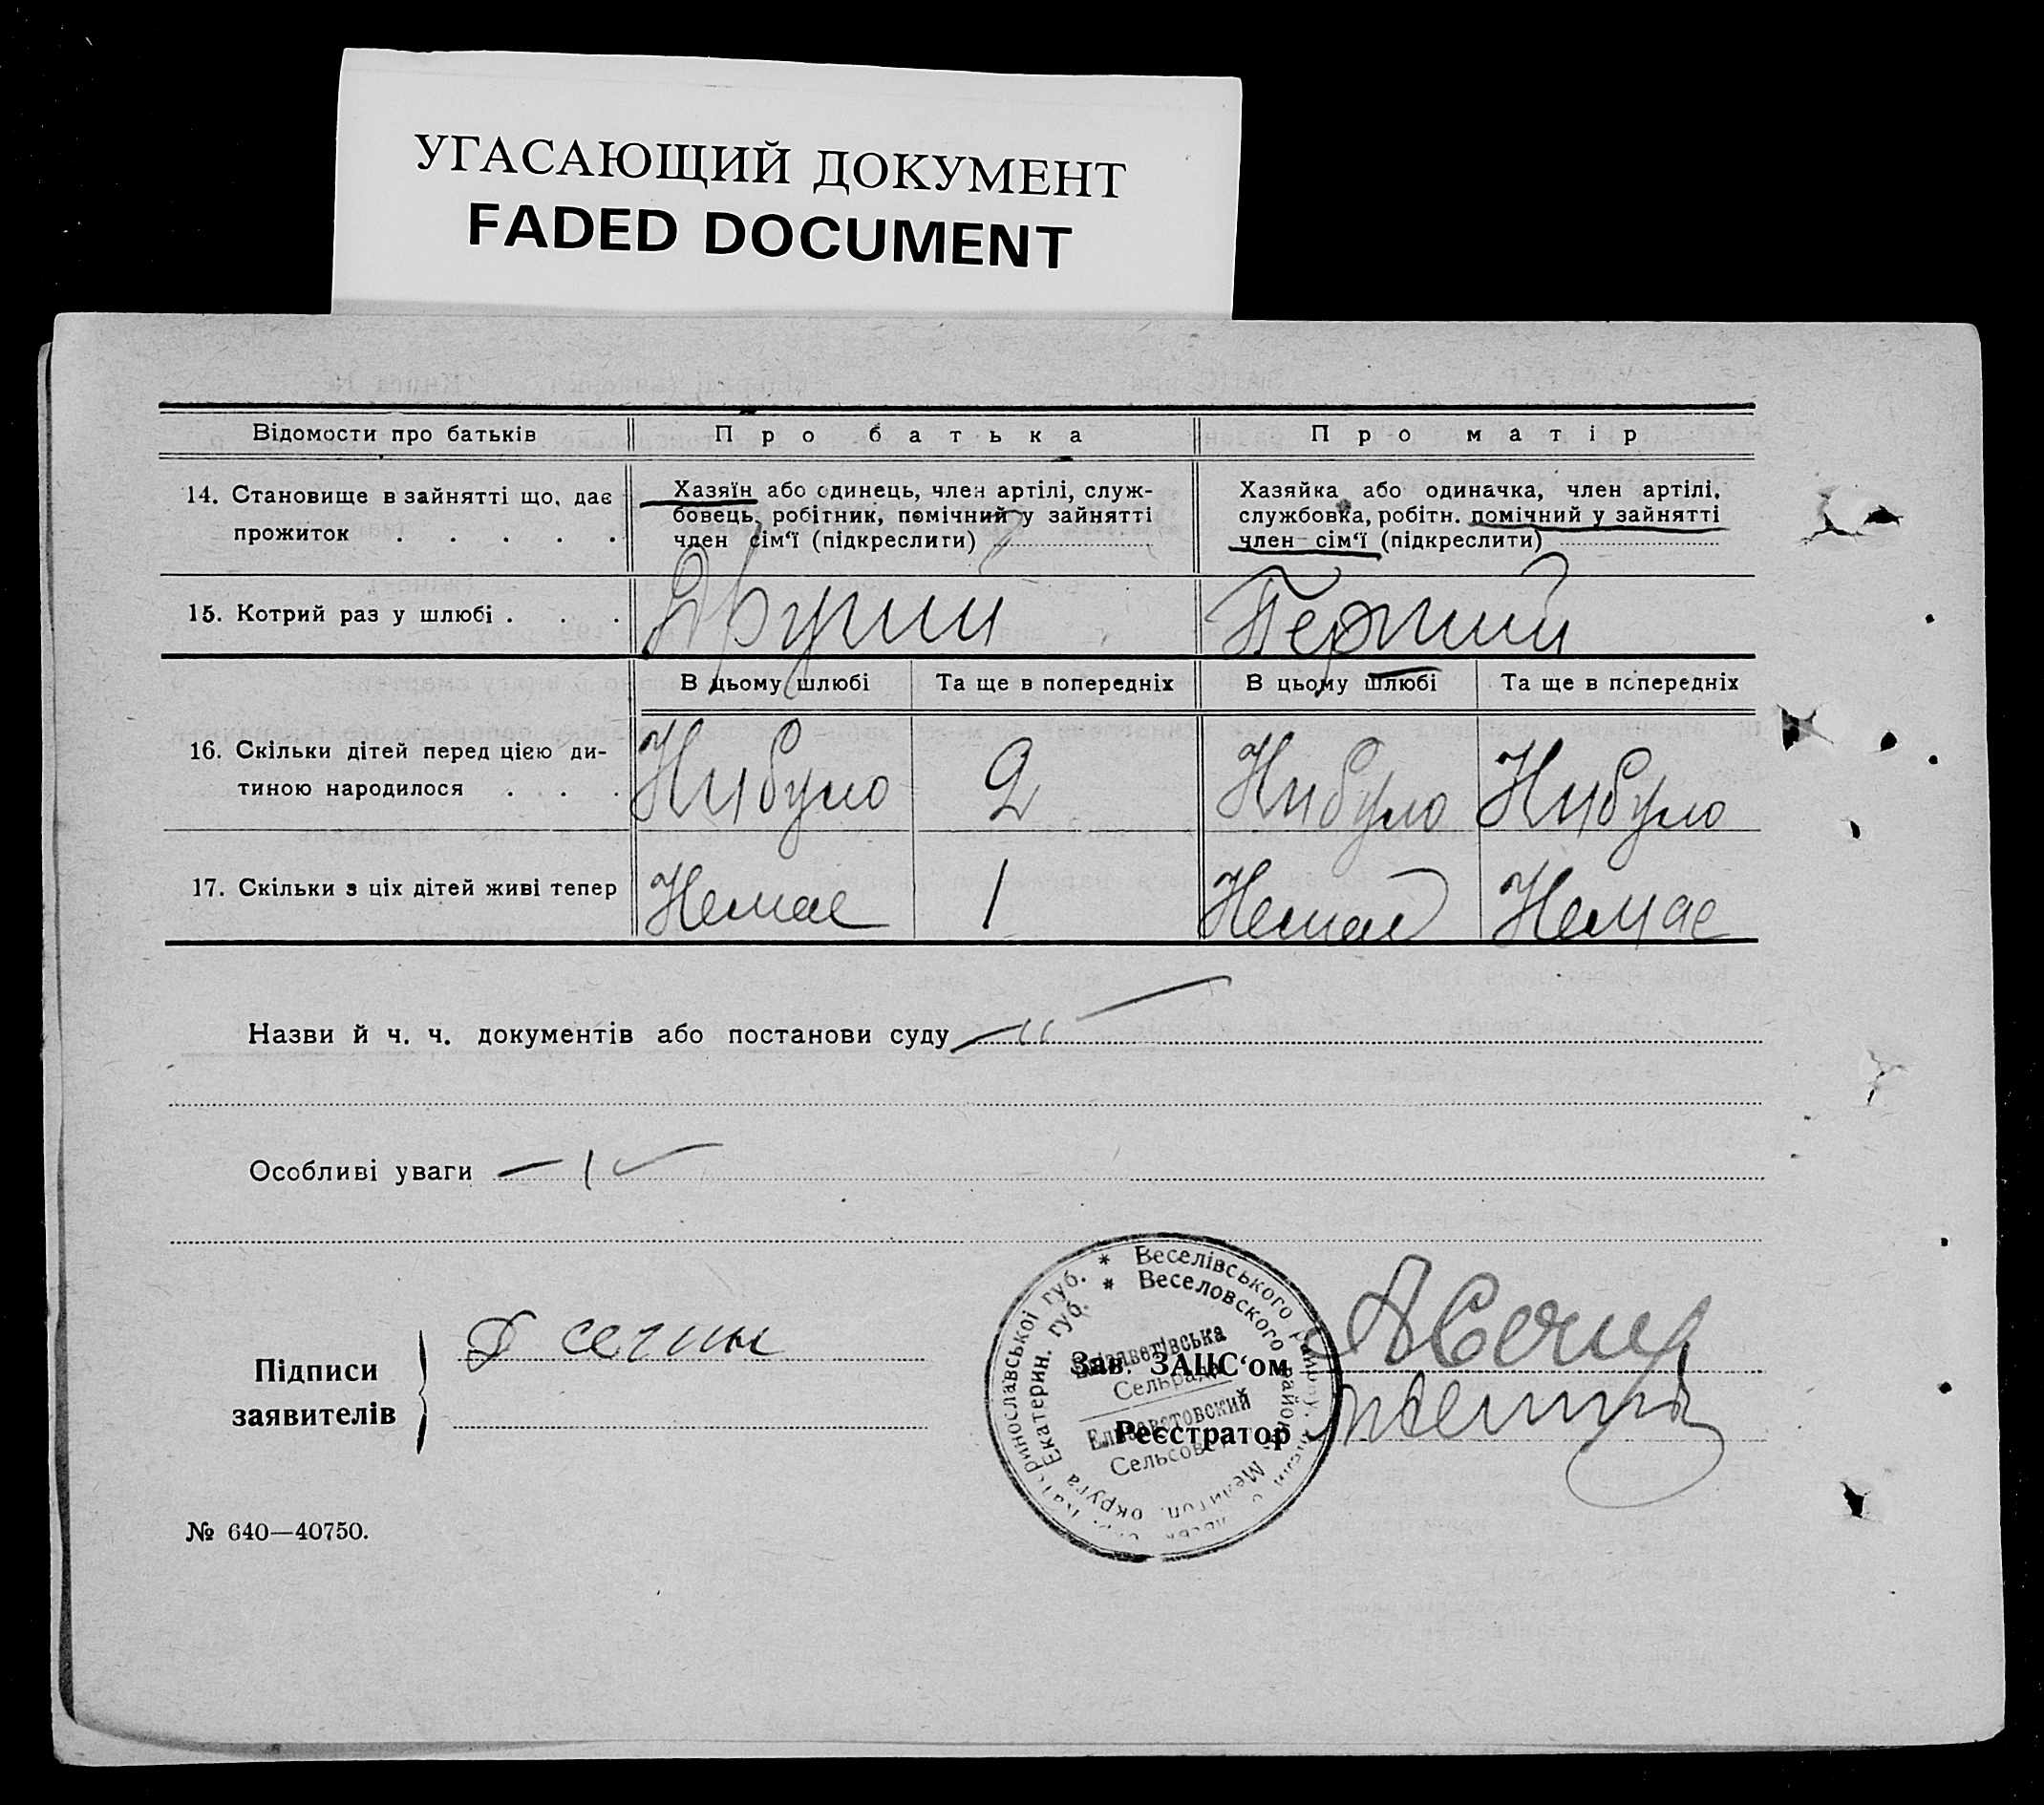 УГАСАЮЩИЙ ДОКУМЕНТ
FADED DOCUMENT
Відомости про батьків
Про батька
Про матір
14. Становище в зайнятті що, дає
прожиток . . . . .
Хазяїн або одинець, член артілі, служ-
бовець, робітник, помічний у зайнятті
член сім‘ї (підкреслити)
Хазяйка або одиначка, член артілі,
службовка, робітн. помічний у зайнятті
член сім‘ї (підкреслити)
15. Котрий раз у шлюбі . . .
Другий
Перший
В цьому шлюбі
Та ще в попередніх
В цьому шлюбі
Та ще в попередніх
16. Скільки дітей перед цією ди-
тиною народилося . . .
Нибуло
2
Нибуло
Нибуло
17. Скільки з ціх дітей живі тепер
Немае
1
Немае
Немае
Назви й ч. ч. документів або постанови суду
Особливі уваги
Підписи
заявителів
Зав. ЗАЦС‘ом
Реєстратор
* Веселівського району,
* Веселовского район
Екатерин. губ.
Мелитоп. округа
Єлізаветівська
Сельрада
Елизаветовский
Сельсовет
№ 640—40750.